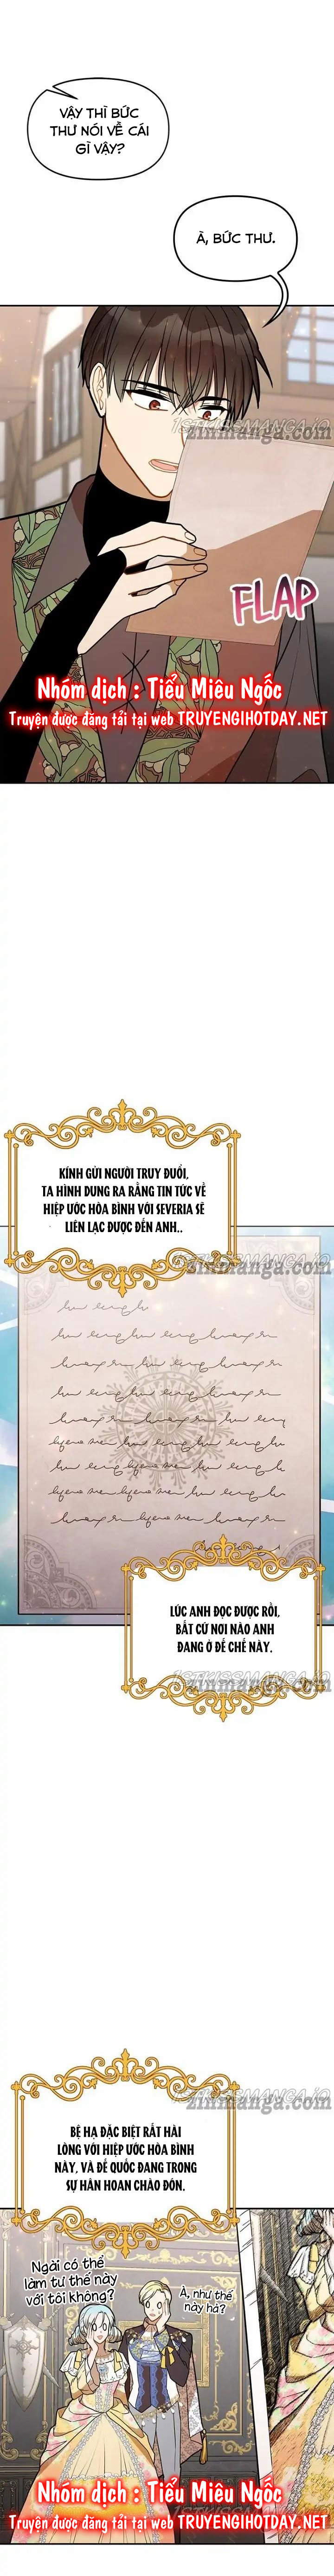 VẬY THÌ BỨC
THƯ NÓI VỀ CÁI
GÌ VẬY?
À, BỨC THƯ.
1STKISSMANGA.IO
zinmanga.com
FLAP
Nhóm dịch : Tiểu Miêu Ngốc
Truyện được đăng tải tại web TRUYENGIHOTDAY.NET
KÍNH GỬI NGƯỜI TRUY ĐUỔI,
TA HÌNH DUNG RA RẰNG TIN TỨC VỀ
HIỆP ƯỚC HÒA BÌNH VỚI SEVERIA SẼ
LIÊN LẠC ĐƯỢC ĐẾN ANH..
1STKISSMANGA.IO
zinmanga.com
LÚC ANH ĐỌC ĐƯỢC RỒI,
BẤT CỨ NƠI NÀO ANH
ĐANG Ở ĐẾ CHẾ NÀY.
1STKISSMANGA.IO
zinmanga.com
1STKISSMANGA.IO
zinmanga.com
BỆ HẠ ĐẶC BIỆT RẤT HÀI
LÒNG VỚI HIỆP ƯỚC HÒA BÌNH
NÀY, VÀ ĐẾ QUỐC ĐANG TRONG
SỰ HÂN HOAN CHÀO ĐÓN.
Ngài có thể
làm tư thế này
với tôi không?
À, như thế
này hả?
Nhóm dịch : Tiểu Miêu Ngốc
Truyện được đăng tải tại web TRUYENGIHOTDAY.NET